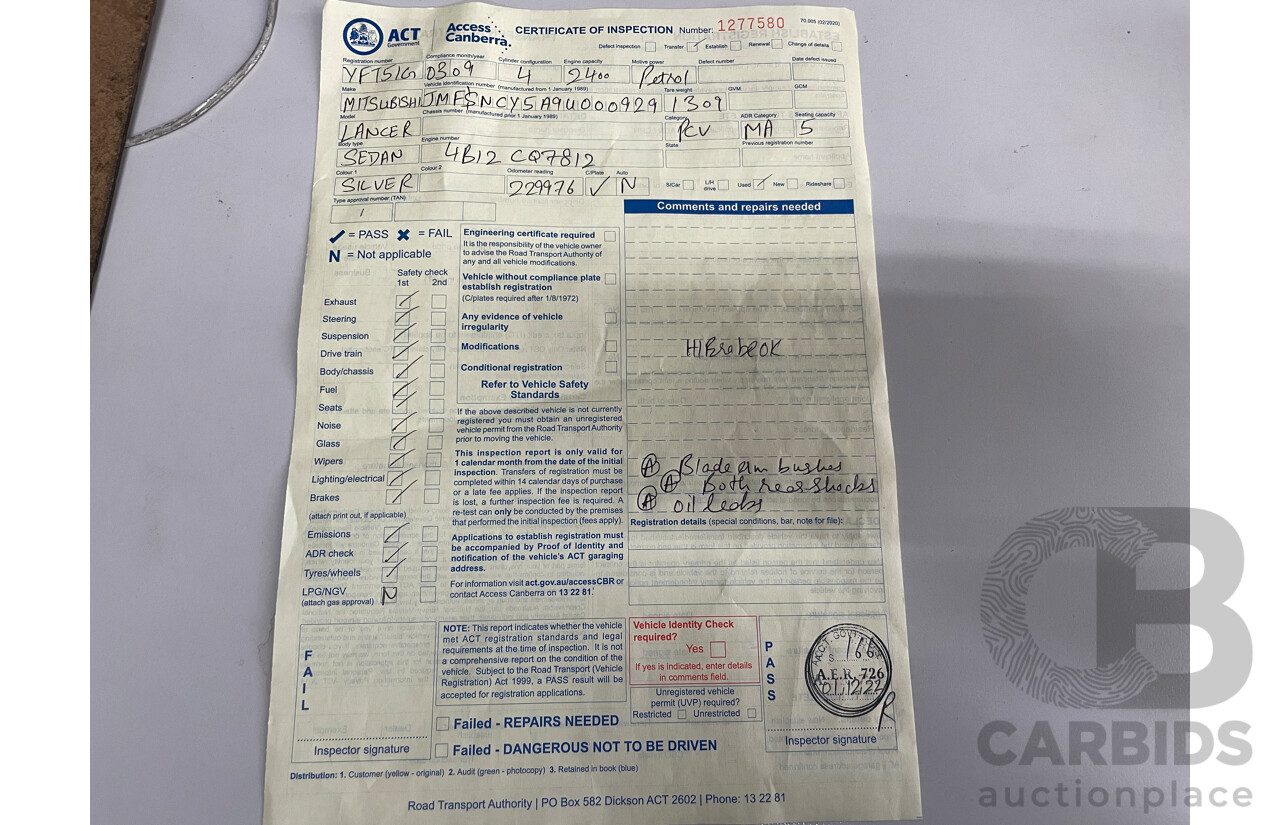 ACT
Government
Access
Canberra
CERTIFICATE OF INSPECTION Number: 1277580
70.005 (02/2020)
Defect Inspection Transfer Establish Renewal Change of details
Registration number Compliance month/year Cylinder configuration Engine capacity Motive power Defect number Date defect issued
0309 4 2400 Petrol
Make Vehicle identification number (manufactured from 1 January 1989) Tare weight GVM GCM
MITSUBISHI JMFSNCY5A9U000929 1309
Model Chassis number (manufactured prior 1 January 1989) Category ADR Category Seating capacity
LANCER PCV MA 5
Body type Engine number State Previous registration number
SEDAN 4B12 CQ7812
Colour 1 Colour 2 Odometer reading C/Plate Auto
SILVER 229976 ✓ N
S/Car L/H drive Used New Rideshare
Type approval number (TAN)
Comments and repairs needed
✓ = PASS ✖ = FAIL
N = Not applicable
Safety check
1st 2nd
Exhaust
Steering
Suspension
Drive train
Body/chassis
Fuel
Seats
Noise
Glass
Wipers
Lighting/electrical
Brakes
(attach print out, if applicable)
Emissions
ADR check
Tyres/wheels
LPG/NGV N
(attach gas approval)
Engineering certificate required
It is the responsibility of the vehicle owner
to advise the Road Transport Authority of
any and all vehicle modifications.
Vehicle without compliance plate
establish registration
(C/plates required after 1/8/1972)
Any evidence of vehicle
irregularity
Modifications
Conditional registration
Refer to Vehicle Safety
Standards
If the above described vehicle is not currently
registered you must obtain an unregistered
vehicle permit from the Road Transport Authority
prior to moving the vehicle.
This inspection report is only valid for
1 calendar month from the date of the initial
inspection. Transfers of registration must be
completed within 14 calendar days of purchase
or a late fee applies. If the inspection report
is lost, a further inspection fee is required. A
re-test can only be conducted by the premises
that performed the initial inspection (fees apply).
Applications to establish registration must
be accompanied by Proof of Identity and
notification of the vehicle's ACT garaging
address.
For information visit act.gov.au/accessCBR or
contact Access Canberra on 13 22 81.
OK
A Blade arm bushes
A Both rear shocks
A oil leaks
Registration details (special conditions, bar, note for file):
FAIL
Inspector signature
NOTE: This report indicates whether the vehicle
met ACT registration standards and legal
requirements at the time of inspection. It is not
a comprehensive report on the condition of the
vehicle. Subject to the Road Transport (Vehicle
Registration) Act 1999, a PASS result will be
accepted for registration applications.
Failed - REPAIRS NEEDED
Failed - DANGEROUS NOT TO BE DRIVEN
Vehicle Identity Check
required?
Yes
If yes is indicated, enter details
in comments field.
Unregistered vehicle
permit (UVP) required?
Restricted Unrestricted
PASS
A.E.R. 726
Inspector signature
Distribution: 1. Customer (yellow - original) 2. Audit (green - photocopy) 3. Retained in book (blue)
Road Transport Authority | PO Box 582 Dickson ACT 2602 | Phone: 13 22 81
CARBIDS
auctionplace